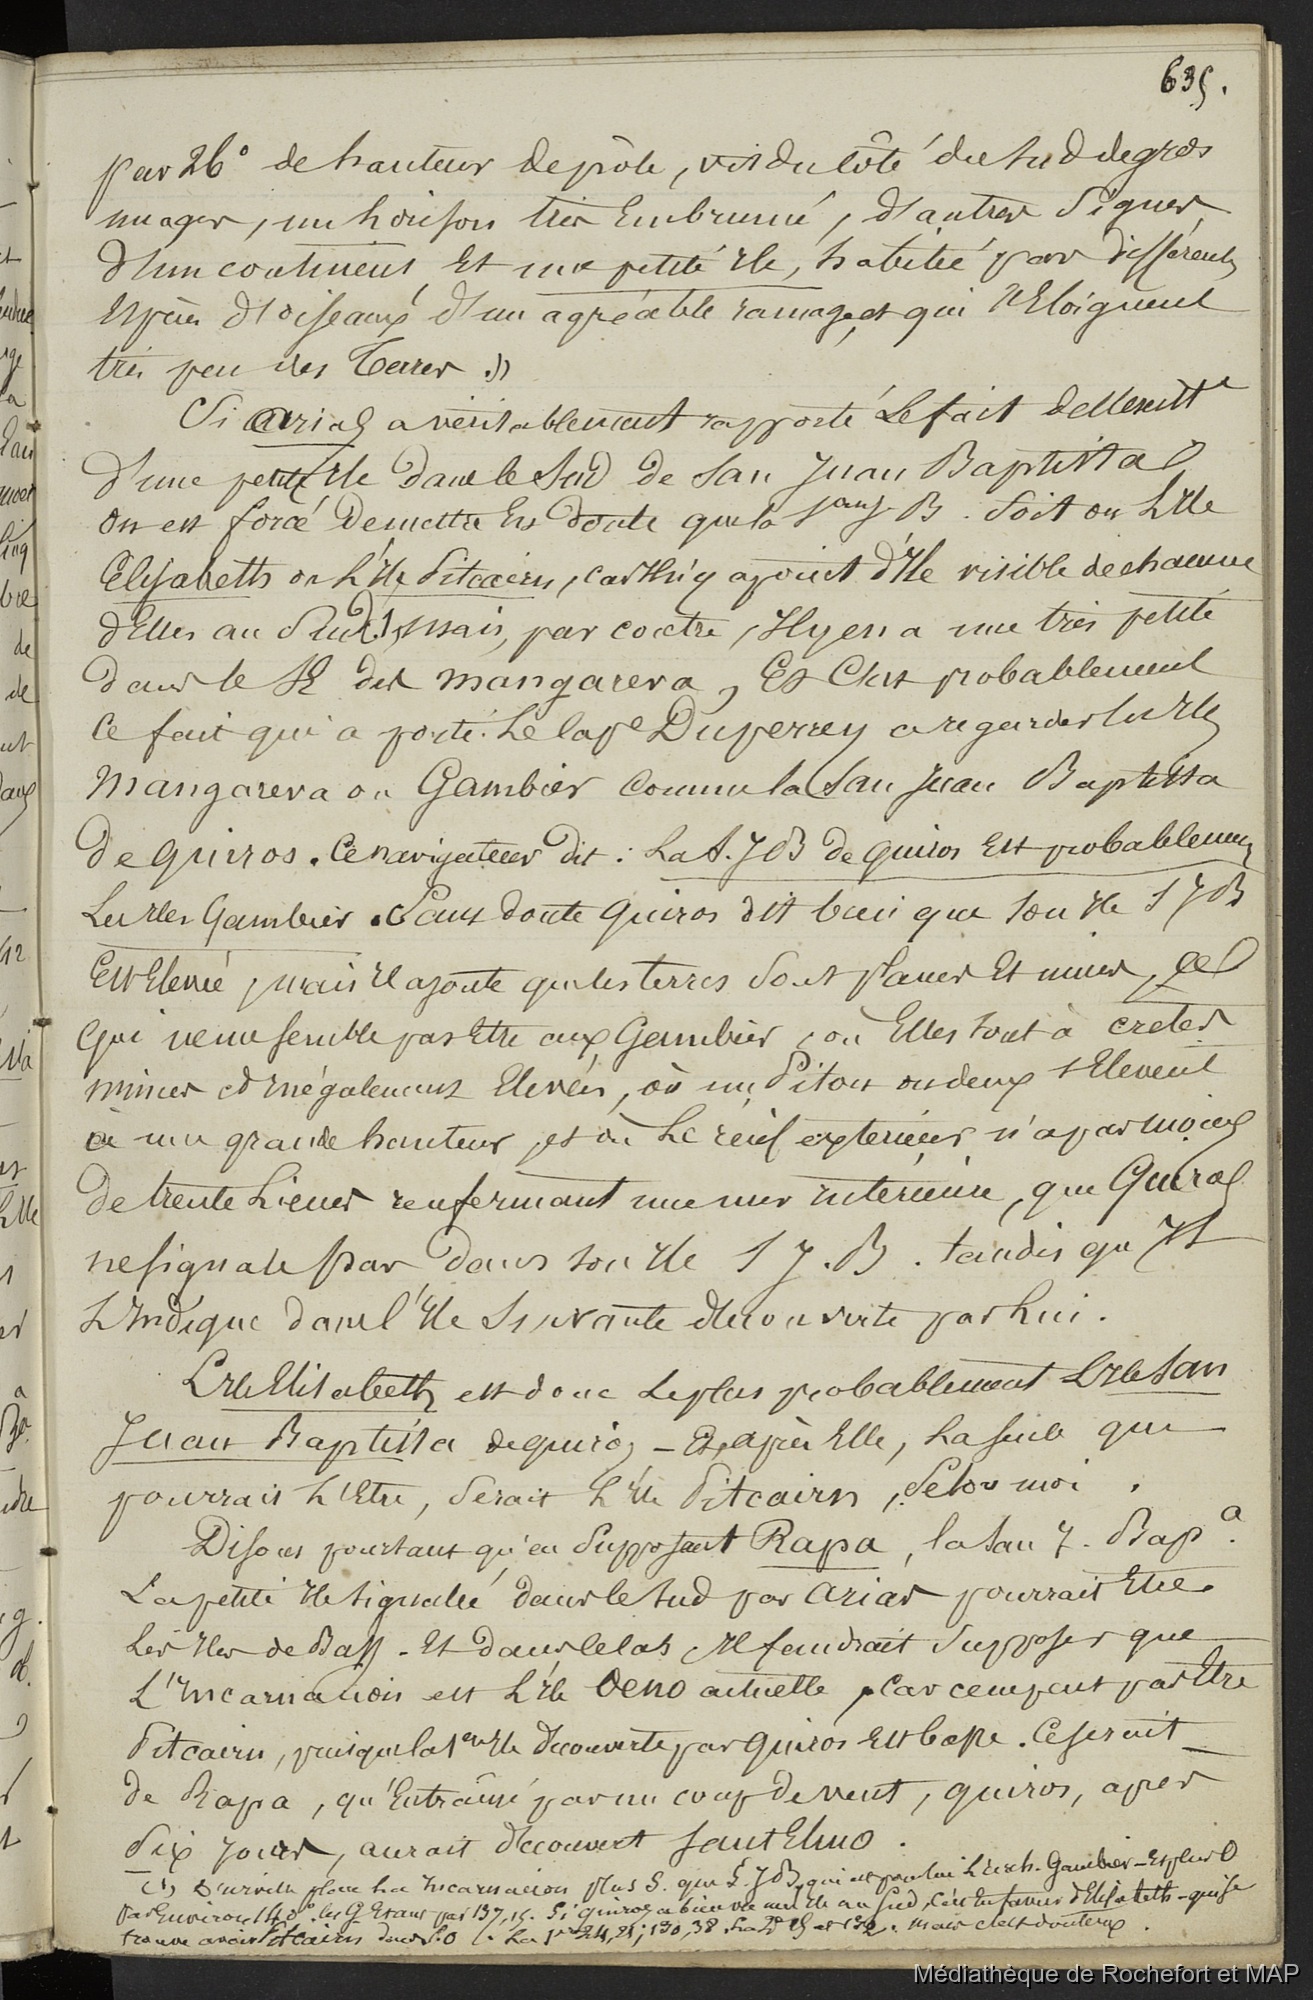 635.
par 26° de hauteur de pôle, vit du côté du sud de gros
nuages, un horison très embrumé, d'autres signes
d'un continent, et une petite île, habitée par différentes
espèces d'oiseaux d'un agréable ramage, et qui s'éloignent
très peu des terres. »
Si Arias a véritablement rapporté le fait de
d'une petite île dans le sud de San Juan Baptista
on est forcé de mettre en doute que la San J. B. soit ou l'île
Elisabeth ou l'île Pitcairn, car il n'y a point d'île visible de chacune
d'elles au sud (1), mais, par contre, il y en a une très petite
dans le SE des Mangareva, et c'est probablement
ce fait qui a porté le Cape Duperrey a regarder les îles
Mangareva ou Gambier comme la San Juan Baptista
de Quiros. Ce navigateur dit : La S. J B de Quiros est probablement
les îles Gambier. Sans doute Quiros dit bien que son île S J B
est élevée, mais il ajoute que les terres sont planes et unies, ce
qui ne me semble pas être aux Gambier, où elles sont à cretes
minces et inégalement élevées, où un piton ou deux s'élèvent
à une grande hauteur, et où le récif extérieur n'a pas moins
de trente lieues renfermant une mer intérieure, que Quiros
ne signale pas dans son île S J. B. tandis qu'il
l'indique dans l'île suivante découverte par lui.
L'île Elisabeth est donc le plus probablement l'île San
Juan Baptista de Quiros - Et, après elle, la seule qui
pourrait l'être, serait l'île Pitcairn, selon moi.
Disons pourtant qu'en supposant Rapa, la San J. Bapa.
La petite île signalée dans le sud par Arias pourrait être
les îles de Bass. - Et dans ce cas, il faudrait supposer que
L'Incarnation est l'île Oeno actuelle, car ce ne peut pas être
Pitcairn, puisque la 1ere île découverte par Quiros est basse. Ce serait
de Rapa, qu'entraîné par un coup de vent, Quiros, après
dix jours, aurait découvert Sant Elmo.
(1) D'Urville place la Incarnacion plus S. que S. J B, qui est pour lui l'arch. Gambier - Et plus O
par environ 140°. les G étant par 137,15. Si Quiros a bien vu une île au sud, c'est en faveur d'Elisabeth - qui se
trouve avoir Pitcairn dans S. O. La 1ere 24,21; 130,38. La 2e 25 et 132. mais c'est douteux.
Médiathèque de Rochefort et MAP